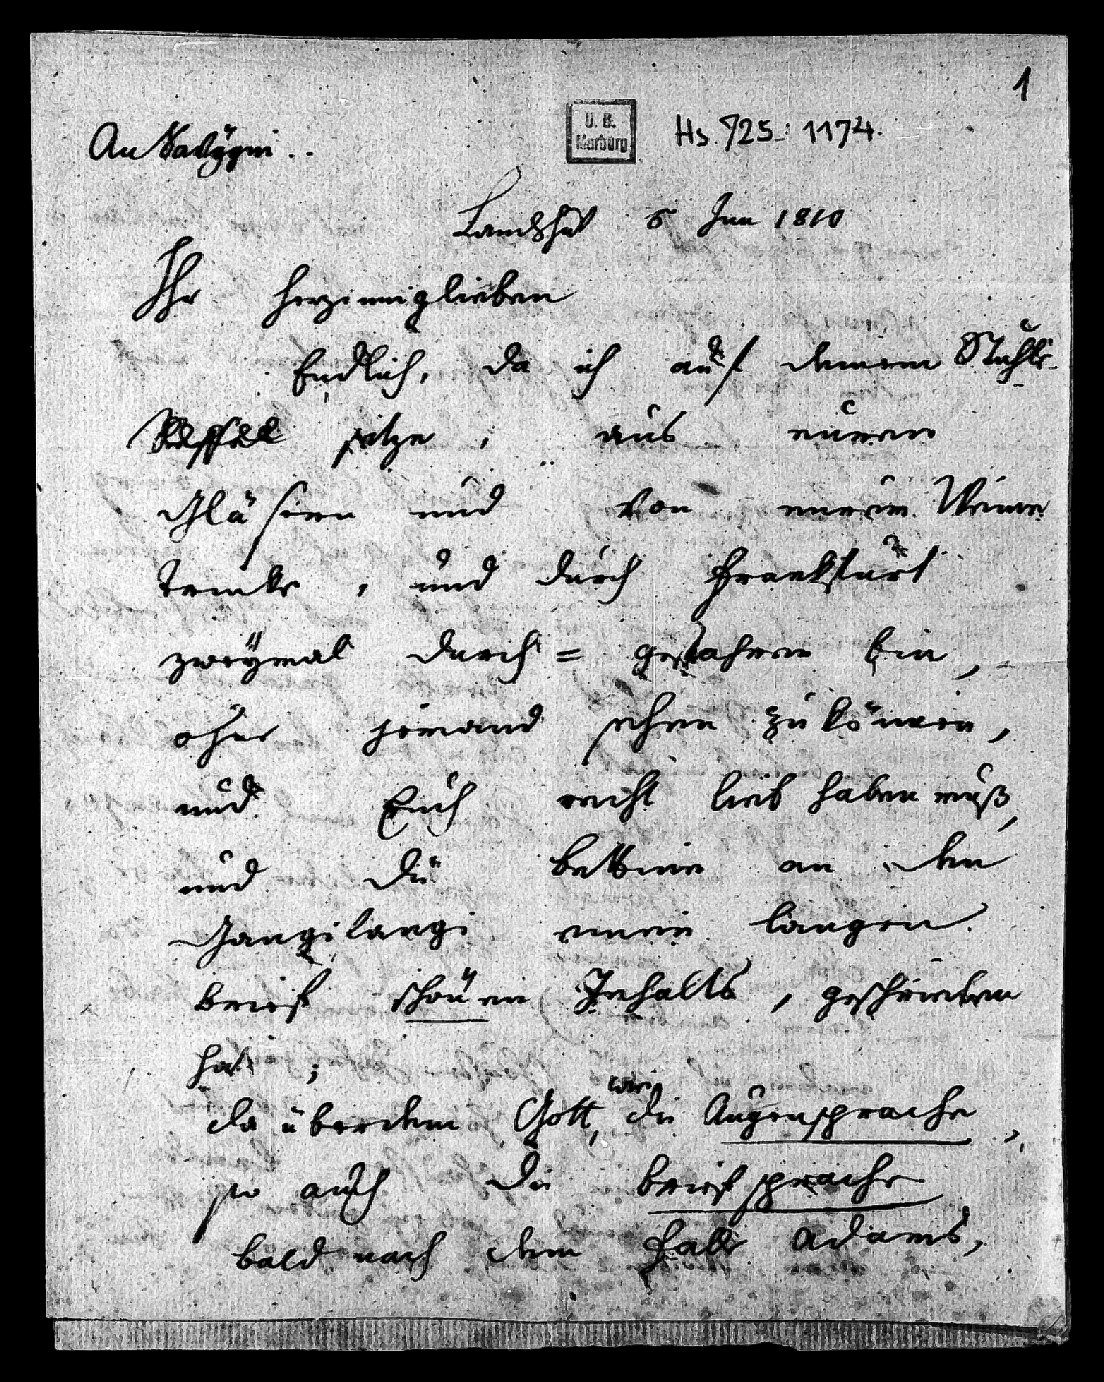 1
An Savigni..
U. B. Marburg
Hs. 725: 1174.
Landshut 6 Jun 1810
Ihr herzinniglieben
Endlich, da ich auf deinem Stuhle
sitze, aus euren
Gläsern und von eurem Weine
trinke, und durch Frankfurt
zweymal durch= gefahren bin,
ohne jemand sehen zu können,
und Euch recht lieb haben muß,
und die bettine an den
Gangilangi einen langen
brief schönen Inhalts, geschrieben
hat;
da überdem Gott, wie die Augensprache,
so auch die briefsprache
bald nach dem Falle Adams,